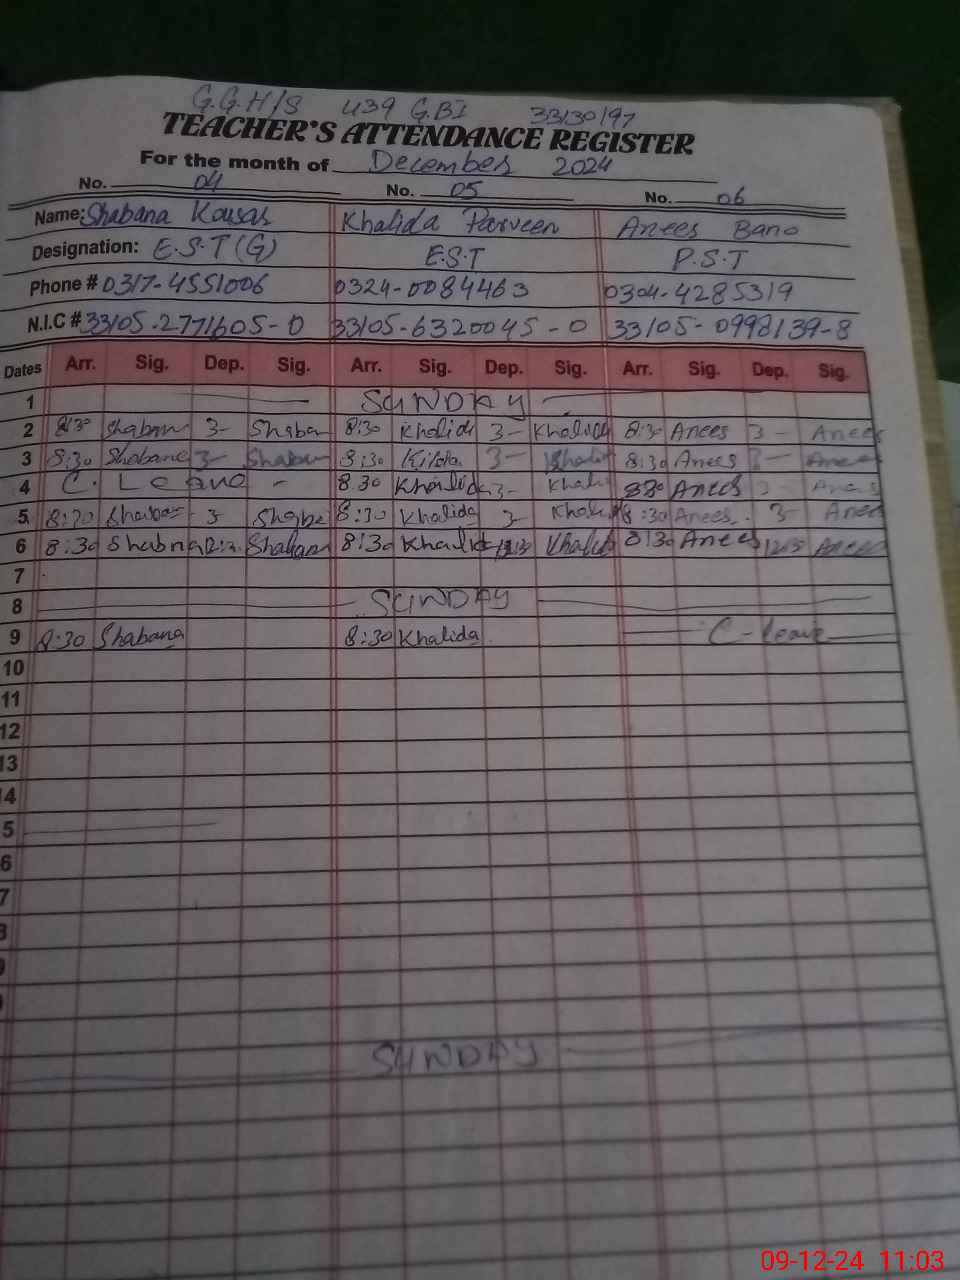 G.G.H/S 439 G.B I 33130197
TEACHER'S ATTENDANCE REGISTER
For the month of December 2024
No. 04 No. 05 No. 06
Name: Shabana Kousas Khalida Parveen Anees Bano
Designation: E.S.T (G) E.S.T P.S.T
Phone # 0317-4551006 0324-0084463 0304-4285319
N.I.C # 33105-2771605-0 33105-6320045-0 33105-0998139-8
Dates Arr. Sig. Dep. Sig. Arr. Sig. Dep. Sig. Arr. Sig. Dep. Sig.
1 SUNDAY
2 8:30 Shaban 3- Shaban 8:30 Khalida 3- Khalida 8:30 Anees 3- Anees
3 8:30 Shabana 3- Shaban 8:30 3- Khalid 8:30 Anees 3- Anees
4 C. Leave - 8.30 Khalida 3- Khali 8:30 Anees 3- Anees
5 8:30 Shaban 3- Shaba 8:30 Khalida 3- Khalid 8:30 Anees 3- Anees
6 8:30 Shabna 12:30 Shaban 8:30 Khalida 12:30 Khalid 8:30 Anees 12:30 Anees
7
8 SUNDAY
9 8:30 Shabana 8:30 Khalida C-leave
10
11
12
13
4
5
6
7
SUNDAY
09-12-24 11:03